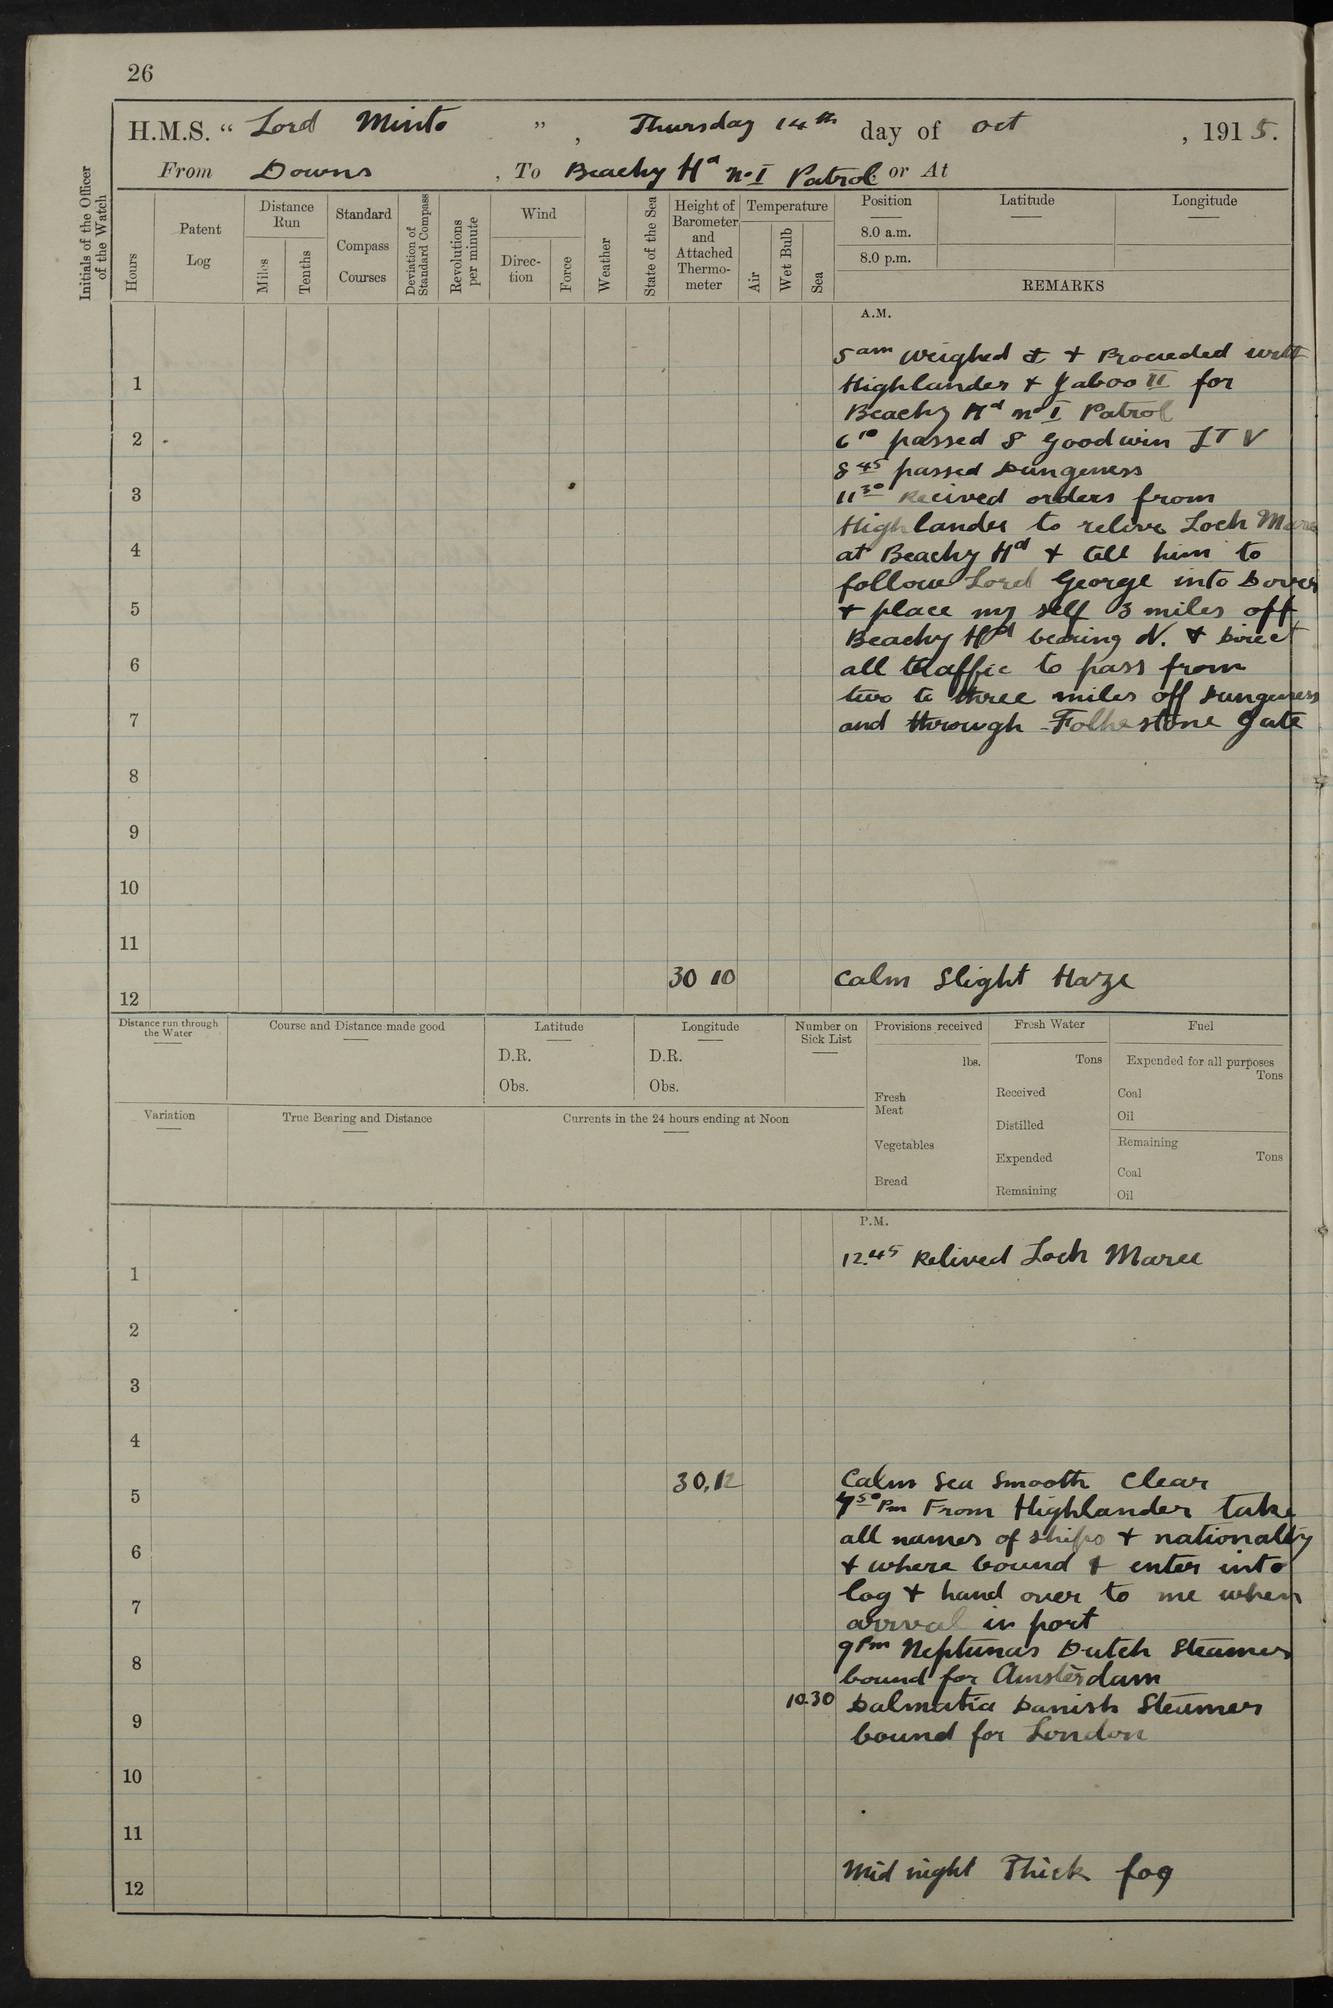 26
H.M.S. “ Lord Minto ” , Thursday 14th day of Oct , 1915.
From Downs , To Beachy Hd No I Patrol or At
Initials of the Officer of the Watch
Hours
Patent Log
Distance Run
Miles
Tenths
Standard Compass Courses
Deviation of Standard Compass
Revolutions per minute
Wind
Direction
Force
Weather
State of the Sea
Height of Barometer and Attached Thermometer
Temperature
Air
Wet Bulb
Sea
Position
8.0 a.m.
8.0 p.m.
Latitude
Longitude
REMARKS
A.M.
5 am Weighed ⚓ + Proceeded with
1 Highlander + Yaboo II for
Beachy Hd No I Patrol
2 6 10 passed S Goodwin LTV
8 45 passed Dungeness
3 11 30 Recived orders from
Highlander to relive Loch Maree
4 at Beachy Hd + tell him to
follow Lord George into Dover
5 + place my self 3 miles off
Beachy Hd bearing N. + Direct
6 all traffic to pass from
two to three miles off Dungeness
7 and through Folkestone Gate
8
9
10
11
30 10 Calm Slight Haze
12
Distance run through the Water
Course and Distance made good
Latitude
D.R.
Obs.
Longitude
D.R.
Obs.
Number on Sick List
Provisions received
lbs.
Fresh Meat
Vegetables
Bread
Fresh Water
Tons
Received
Distilled
Expended
Remaining
Fuel
Expended for all purposes
Tons
Coal
Oil
Remaining
Tons
Coal
Oil
Variation
True Bearing and Distance
Currents in the 24 hours ending at Noon
P.M.
12.45 Relived Loch Maree
1
2
3
4
30.12 Calm Sea Smooth Clear
5
7 50 Pm From Highlander take
all names of ships + nationality
6
+ where bound + enter into
log + hand over to me when
7
arrival in port
9 Pm Neptunas Dutch Steamer
8
bound for Amsterdam
10.30 Dalmatia Danish Steamer
9
bound for London
10
11
Mid night Thick fog
12